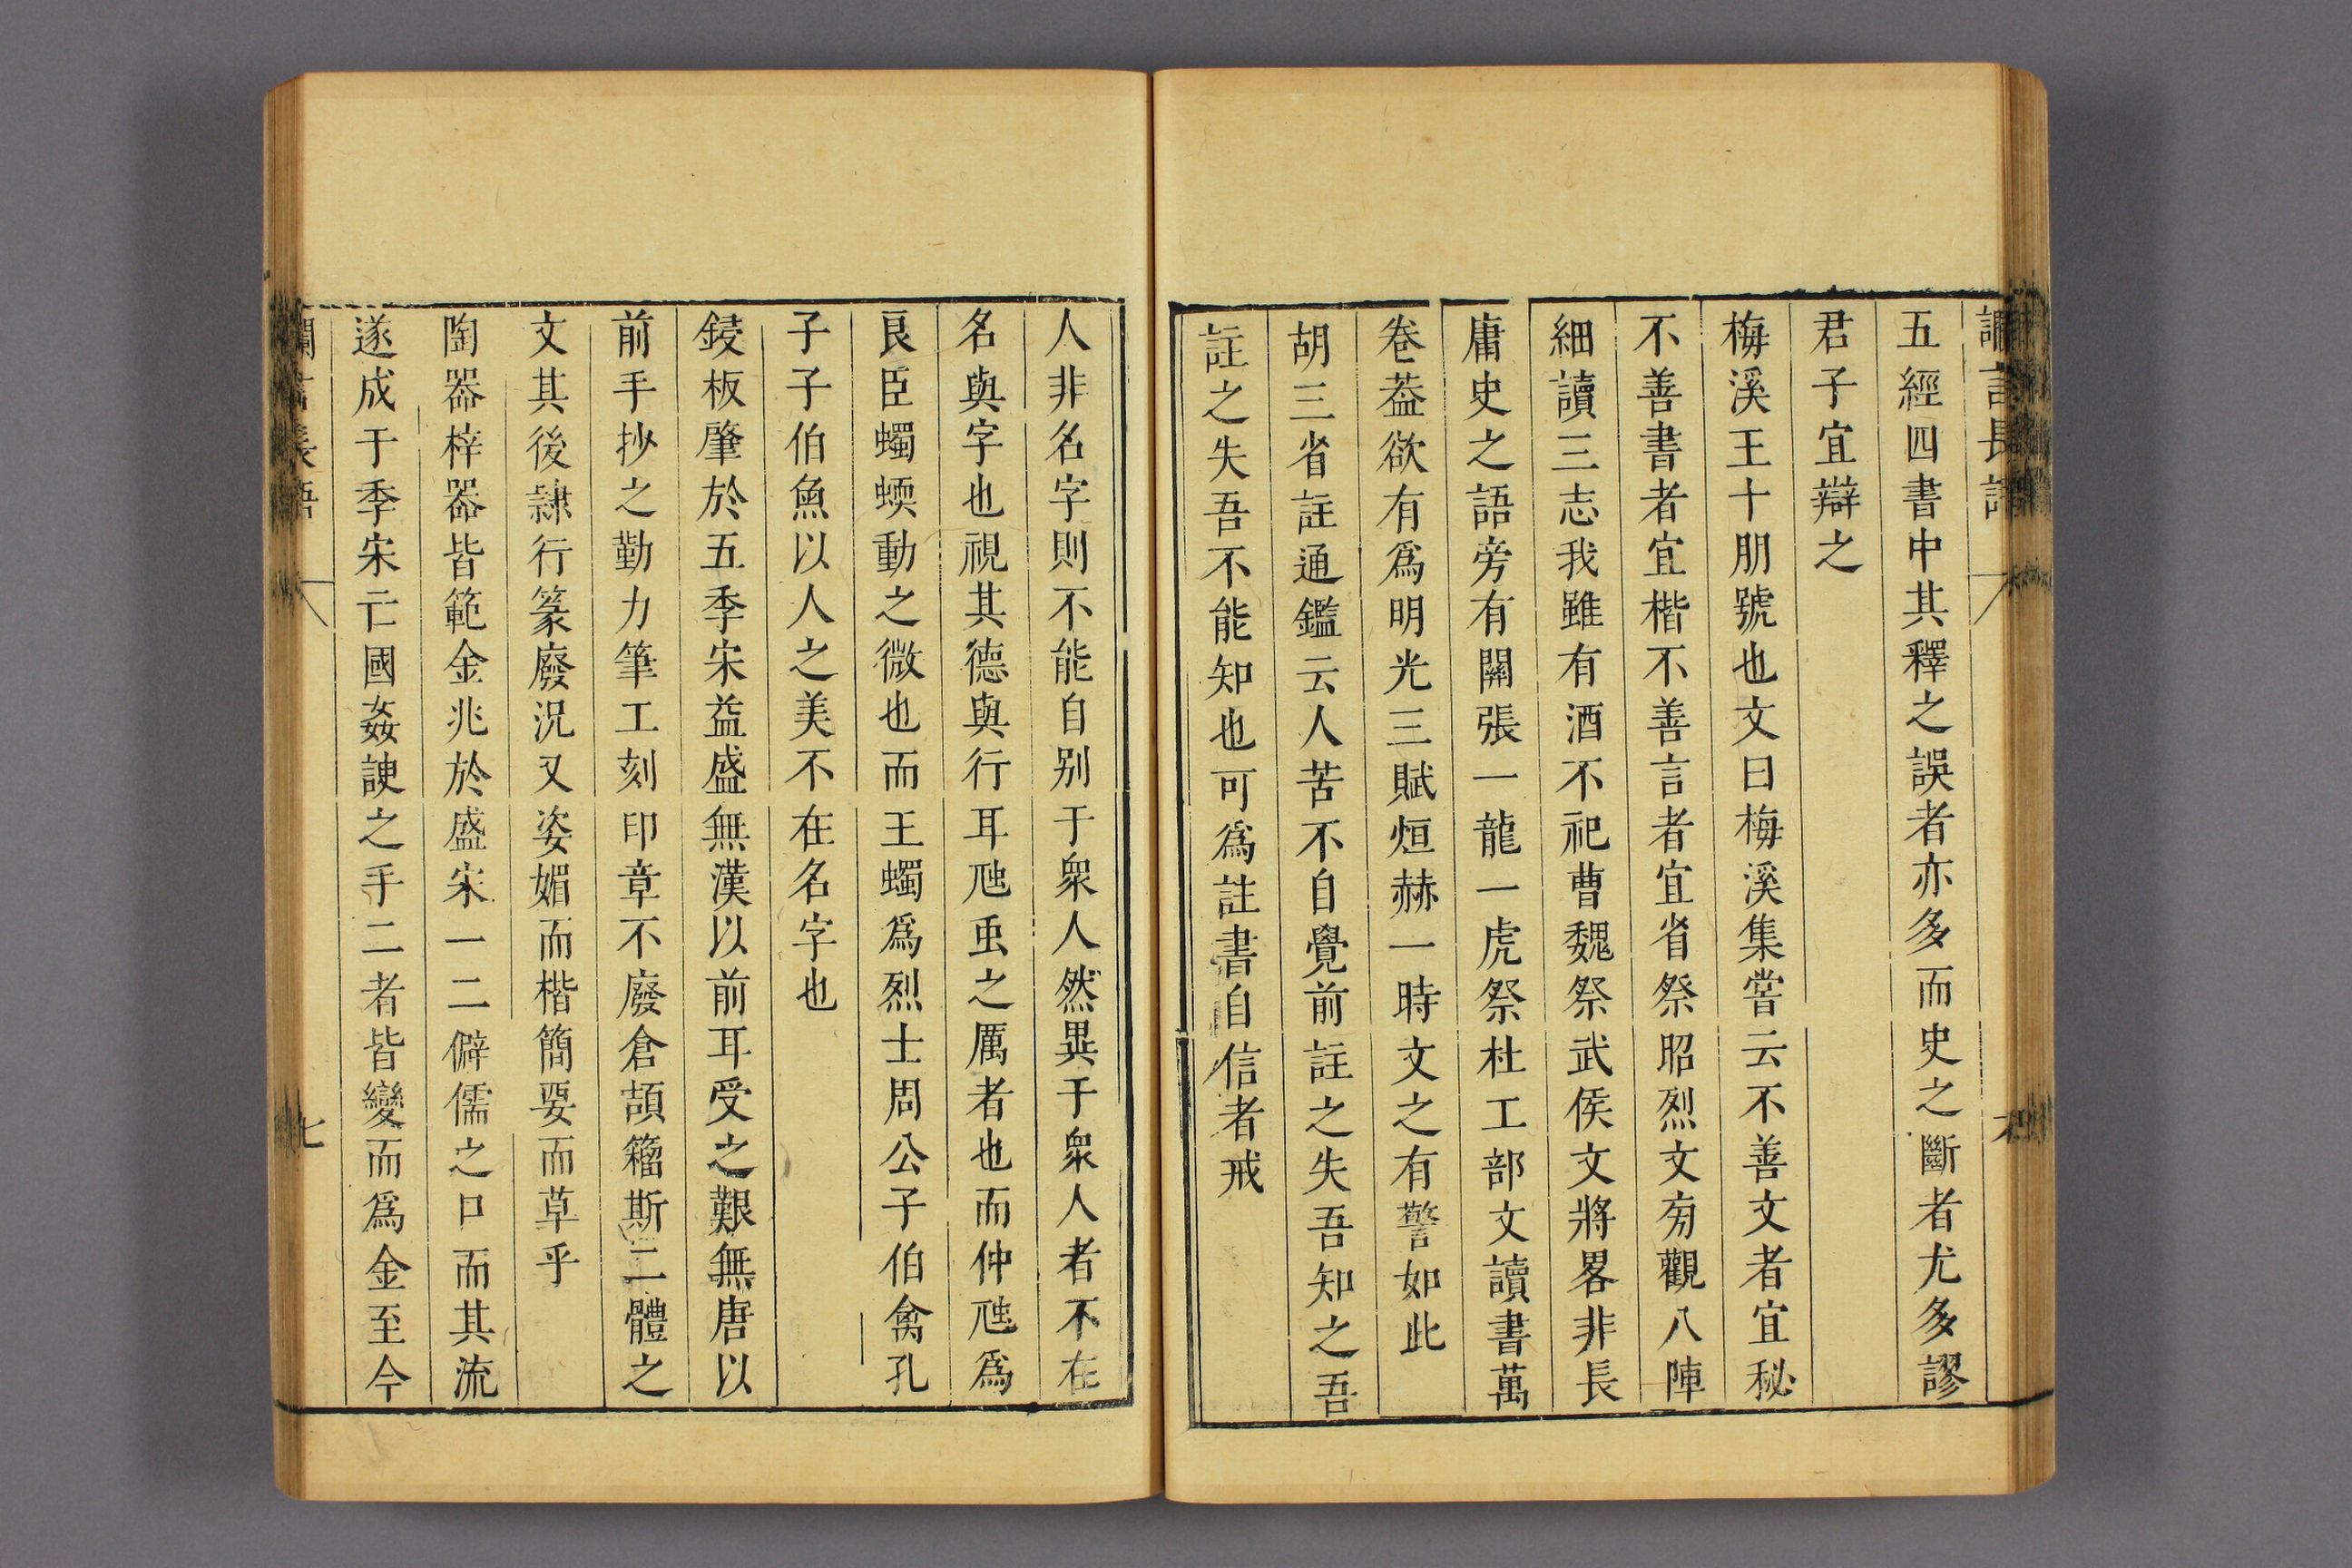 讕言長語
六
五經四書中其釋之誤者亦多而史之斷者尤多謬
君子宜辯之
梅溪王十朋號也文曰梅溪集嘗云不善文者宜秘
不善書者宜楷不善言者宜省祭昭烈文旁觀八陣
細讀三志我雖有酒不祀曹魏祭武侯文將畧非長
庸史之語旁有關張一龍一虎祭杜工部文讀書萬
卷葢欲有爲明光三賦烜赫一時文之有警如此
胡三省註通鑑云人苦不自覺前註之失吾知之吾
註之失吾不能知也可爲註書自信者戒
人非名字則不能自别于衆人然異于衆人者不在
名與字也視其德與行耳虺虫之厲者也而仲虺爲
良臣蠋蝡動之微也而王蠋爲烈士周公子伯禽孔
子子伯魚以人之美不在名字也
鋟板肇於五季宋益盛無漢以前耳受之艱無唐以
前手抄之勤力筆工刻印章不廢倉頡籀斯二體之
文其後隷行篆廢況又姿媚而楷簡要而草乎
陶器梓器皆範金兆於盛宋一二僻儒之口而其流
遂成于季宋亡國姦諛之手二者皆變而爲金至今
讕言長語
七